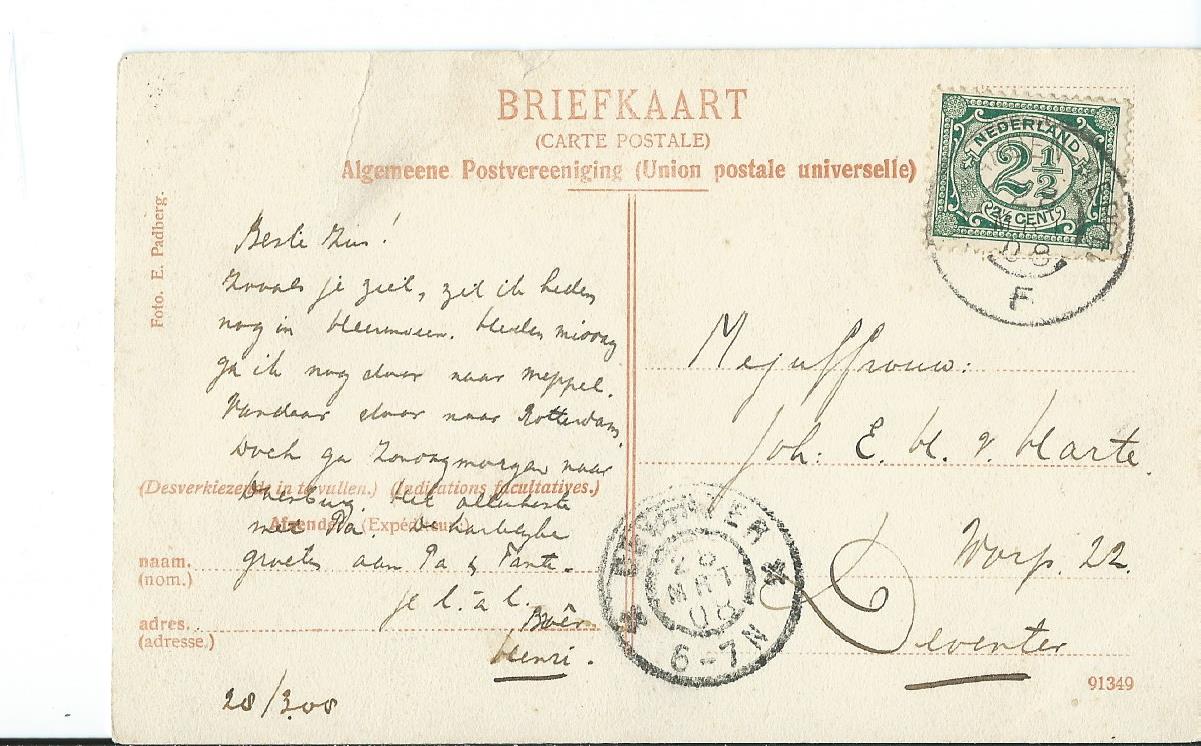 BRIEFKAART
(CARTE POSTALE)
Algemeene Postvereeniging (Union postale universelle)
NEDERLAND
2½
2½ CENT
08
F
Foto. E. Padberg.
Beste Zus!
Zooals je ziet, zit ik heden
nog in Heerenveen. Heden
ga ik nog door naar Meppel.
Vandaar door naar Rotterdam.
Doch ga morgen naar
Het allerbeste
met Pa. De hartelijke
groeten aan Pa & Tante.
je l. a. l.
Broêr
Henri.
28/3.08
(Desverkiezende in te vullen.) (Indications facultatives.)
Afzender. (Expéditeur.)
naam.
(nom.)
adres.
(adresse.)
Mejuffrouw:
Joh: E. H. v Harte.
Worp. 22.
Deventer
DEVENTER
28
MRT
08
6-7N
91349